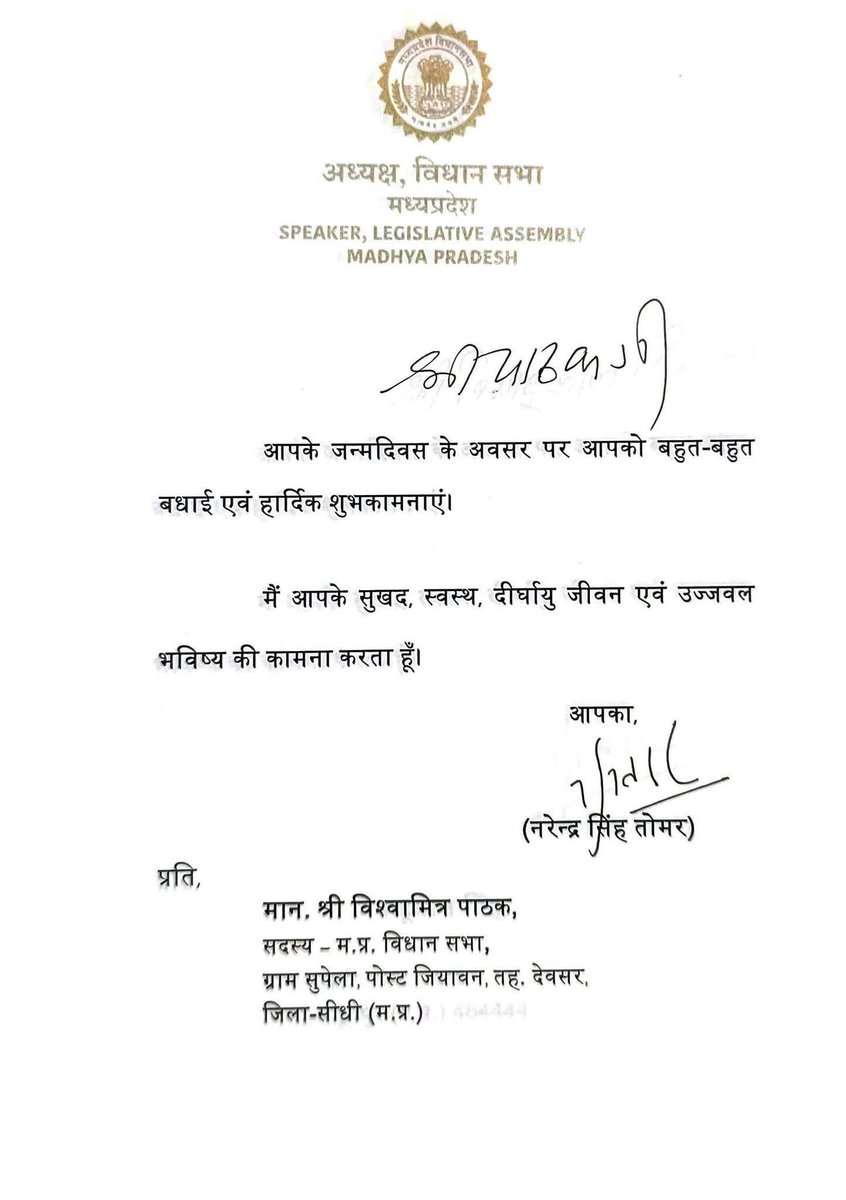 मध्यप्रदेश विधानसभा
सत्यमेव जयते
अध्यक्ष, विधान सभा
मध्यप्रदेश
SPEAKER, LEGISLATIVE ASSEMBLY
MADHYA PRADESH
श्री पाठक जी
आपके जन्मदिवस के अवसर पर आपको बहुत-बहुत
बधाई एवं हार्दिक शुभकामनाएं।
मैं आपके सुखद, स्वस्थ, दीर्घायु जीवन एवं उज्जवल
भविष्य की कामना करता हूँ।
आपका,
(नरेन्द्र सिंह तोमर)
प्रति,
मान. श्री विश्वामित्र पाठक,
सदस्य – म.प्र. विधान सभा,
ग्राम सुपेला, पोस्ट जियावन, तह. देवसर,
जिला-सीधी (म.प्र.)